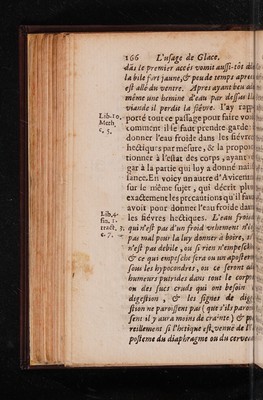 166 L'usage de Glace.
dãs le premier accés vomit aussi-tôt
la bile fort jaune, & peu de temps apres
est allé du ventre. Apres ayant beu
même une hemine d'eau par dessus
viande il perdit la fiévre. I'ay
porté tout ce passage pour faire
comment il le faut prendre garde
donner l'eau froide dans les fiévres
hectiques par mesure, & la propor
tionner à l'estat des corps, ayant
gar à la partie qui luy a donné nais-
sance. En voicy un autre d'Avicenne
sur le même sujet, qui décrit plus
exactement les precautions qu'il faut
avoir pour donner l'eau froide dans
les fiévres hectiques. L'eau froide
qui n'est pas d'un froid vehement n'est
pas mal pour la luy donner à boire,
n'est pas debile, ou si rien n'empesche
& ce qui empesche sera ou un aposteme
sous les hypocondres, ou ce seront
humeurs putrides dans tout le corps
ou des sucs cruds qui ont besoin
digestion, & les signes de dige
stion ne paroissent pas (que s'ils parois
sent il y aura moins de crainte) &
reillement si l'hetique est venuë de l'a
posteme du diaphragme ou du cerveau
Lib. 10.
Meth.
c. 5.
Lib. 4.
fin. 1.
tract. 3.
c. 7.